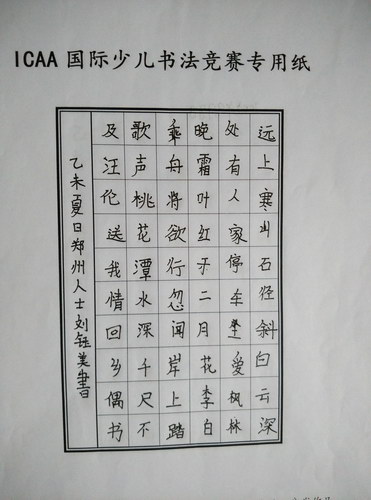 ICAA 国际少儿书法竞赛专用纸
远上寒山石径斜白云深
处有人家停车坐爱枫林
晚霜叶红于二月花李白
乘舟将欲行忽闻岸上踏
歌声桃花潭水深千尺不
及汪伦送我情回乡偶书
乙未夏日郑州人士刘钰美書